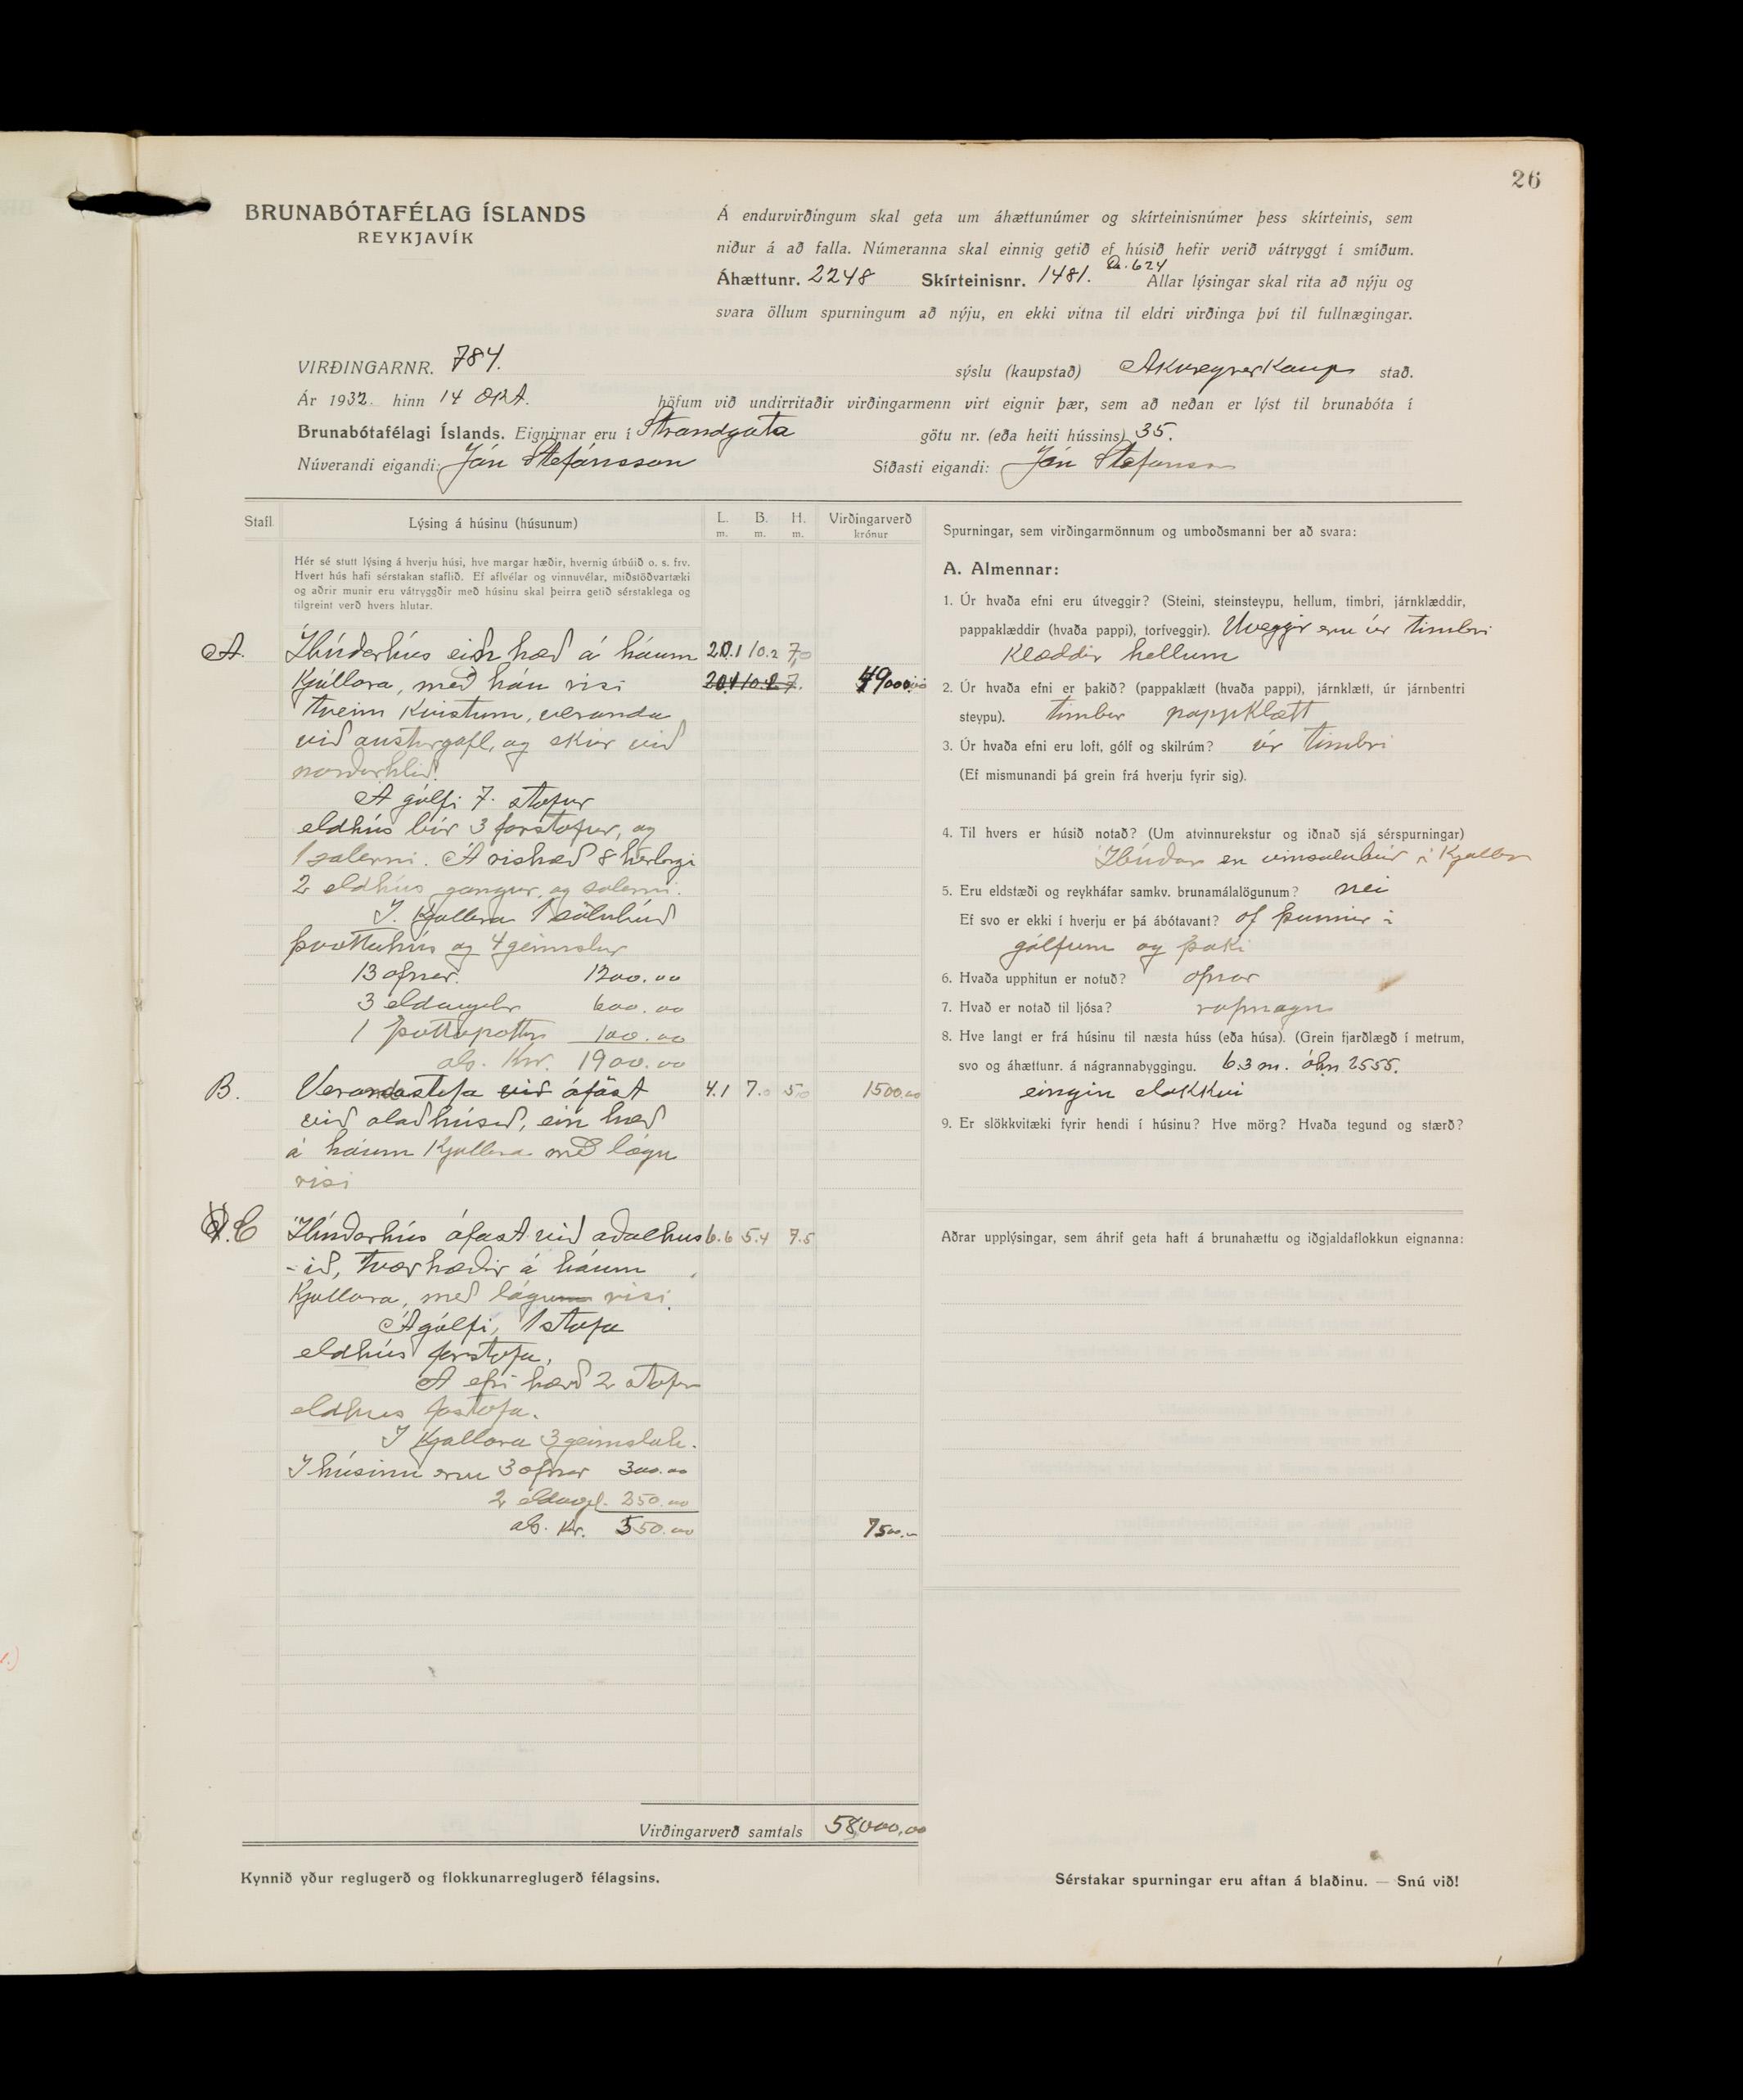 26
BRUNABÓTAFÉLAG ÍSLANDS
REYKJAVÍK
Á endurvirðingum skal geta um áhættunúmer og skírteinisnúmer þess skírteinis, sem
niður á að falla. Númeranna skal einnig getið ef húsið hefir verið vátryggt í smíðum.
Áhættunr. 2248 Skírteinisnr. 1481. 624 Allar lýsingar skal rita að nýju og
svara öllum spurningum að nýju, en ekki vitna til eldri virðinga því til fullnægingar.
VIRÐINGARNR. 784.
sýslu (kaupstað) Akureyrarkaup stað.
Ár 1932. hinn 14 okt. höfum við undirritaðir virðingarmenn virt eignir þær, sem að neðan er lýst til brunabóta í
Brunabótafélagi Íslands. Eignirnar eru í Strandgata götu nr. (eða heiti hússins) 35.
Núverandi eigandi: Jón Stefánsson Síðasti eigandi: Jón Stefansson
Stafl. Lýsing á húsinu (húsunum) L. m. B. m. H. m. Virðingarverð krónur
Hér sé stutt lýsing á hverju húsi, hve margar hæðir, hvernig útbúið o. s. frv.
Hvert hús hafi sérstakan staflið. Ef aflvélar og vinnuvélar, miðstöðvartæki
og aðrir munir eru vátryggðir með húsinu skal þeirra getið sérstaklega og
tilgreint verð hvers hlutar.
A. Íbúðarhús ein hæð á háum 20.1 10.2 7,0
Kjallara, með háu risi 20.1 10.2 7. 49000.00
tveim Kvistum, veranda
við austurgafl, og skúr við
norðurhlið.
Á gólfi 7. stofur
eldhús búr 3 forstofur, og
1 salerni. Á rishæð 8 herbergi
2 eldhús gangur, og salerni.
Í. Kjallara 1 sölubúð
þvottahús og 4 geimslur
13 ofnar. 1200.00
3 eldavelar 600.00
1 þottapottur 100.00
als. Kr. 1900.00
B. Verandastofa við áfäst 4.1 7.0 5,0 1500.00
við alaðhúsið, ein hæð
á háum Kjallara með lágu
risi
C Íbúðarhús áfast við aðalhus 6.6 5.4 7.5
-ið, tvær hæðir á háum
Kjallara, með lágum risi.
Á gólfi, 1 stofa
eldhús forstofa,
Á efri hæð 2 stofur
eldhus fostofa.
Í Kjallara 3 geimslur.
Í húsinu eru 3 ofnar 300.00
2 eldavel. 250.00
als. Kr. 550.00 7500.-
Virðingarverð samtals 58000,00
Kynnið yður reglugerð og flokkunarreglugerð félagsins.
Spurningar, sem virðingarmönnum og umboðsmanni ber að svara:
A. Almennar:
1. Úr hvaða efni eru útveggir? (Steini, steinsteypu, hellum, timbri, járnklæddir,
pappaklæddir (hvaða pappi), torfveggir). Uveggir eru úr timbri
Klæddir hellum
2. Úr hvaða efni er þakið? (pappaklætt (hvaða pappi), járnklætt, úr járnbentri
steypu). timbur pappKlætt
3. Úr hvaða efni eru loft, gólf og skilrúm? úr timbri
(Ef mismunandi þá grein frá hverju fyrir sig).
4. Til hvers er húsið notað? (Um atvinnurekstur og iðnað sjá sérspurningar)
Íbúðar en vinsalubúð í Kjallar
5. Eru eldstæði og reykháfar samkv. brunamálalögunum? nei
Ef svo er ekki í hverju er þá ábótavant? of þunnir í
gólfum og þaki
6. Hvaða upphitun er notuð? ofnar
7. Hvað er notað til ljósa? rafmagn
8. Hve langt er frá húsinu til næsta húss (eða húsa). (Grein fjarðlægð í metrum,
svo og áhættunr. á nágrannabyggingu. 6.3 m. áhn 2555.
eingin slökkvi
9. Er slökkvitæki fyrir hendi í húsinu? Hve mörg? Hvaða tegund og stærð?
Aðrar upplýsingar, sem áhrif geta haft á brunahættu og iðgjaldaflokkun eignanna:
Sérstakar spurningar eru aftan á blaðinu. — Snú við!